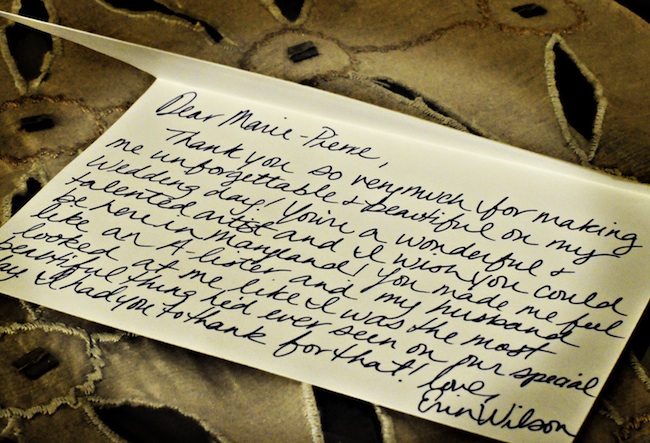 Dear Marie-Pierre,
Thank you so very much for making
me unforgettable & beautiful on my
wedding day! You're a wonderful &
talented artist and I wish you could
be here in Maryland! You made me feel
like an A-lister and my husband
looked at me like I was the most
beautiful thing he'd ever seen on our special
day. I had you to thank for that! Love,
Erin Wilson